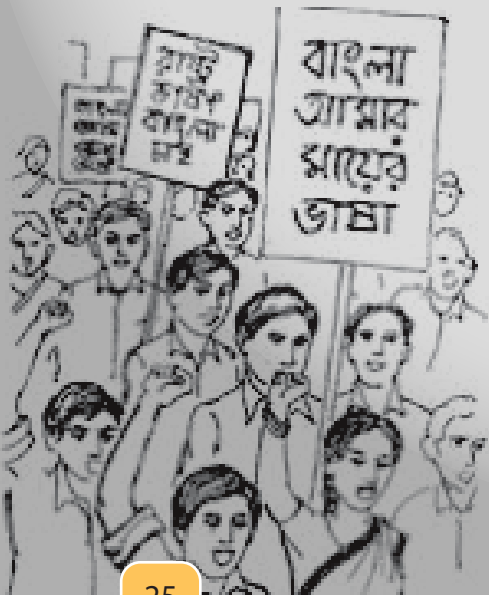 রাষ্ট্র
ভাষা
বাংলা
চাই
বাংলা
আমার
মায়ের
ভাষা
25